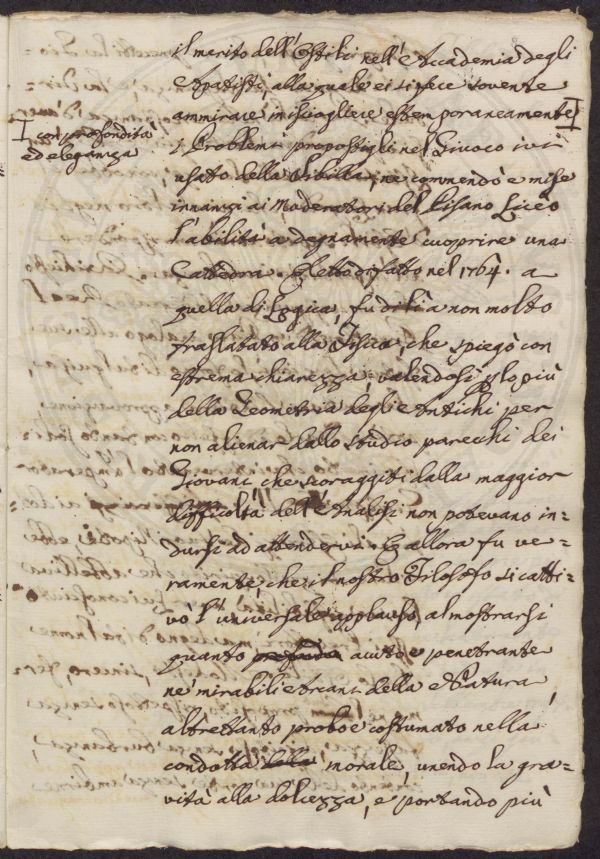 il merito dell'Ostili nell'Accademia degli
Apatisti, alla quale ei si fece sovente
ammirare in isciogliere estemporaneamente
con profondità
ed eleganza
i Problemi propostigli nel Giuoco ivi
usato della Sibilla, ne commendò e mise
innanzi ai Moderatori del Pisano Liceo
l'abilità a degnamente cuoprire una
Cattedra. Eletto difatto nel 1764. a
quella di Logica, fu di lì a non molto
traslatato alla Fisica, che spiegò con
estrema chiarezza, valendosi lo più
della Geometria degli Antichi per
non alienar dallo studio parecchi dei
Giovani che scoraggiti dalla maggior
difficoltà dell'Analisi non potevano in=
dursi ad attendervi. E allora fu ve=
ramente, che il nostro Filosofo si catti=
vò l'universale applauso, al mostrarsi
quanto acuto e penetrante
ne' mirabili arcani della Natura,
altrettanto probo e costumato nella
condotta morale, unendo la gra=
vità alla dolcezza, e portando più